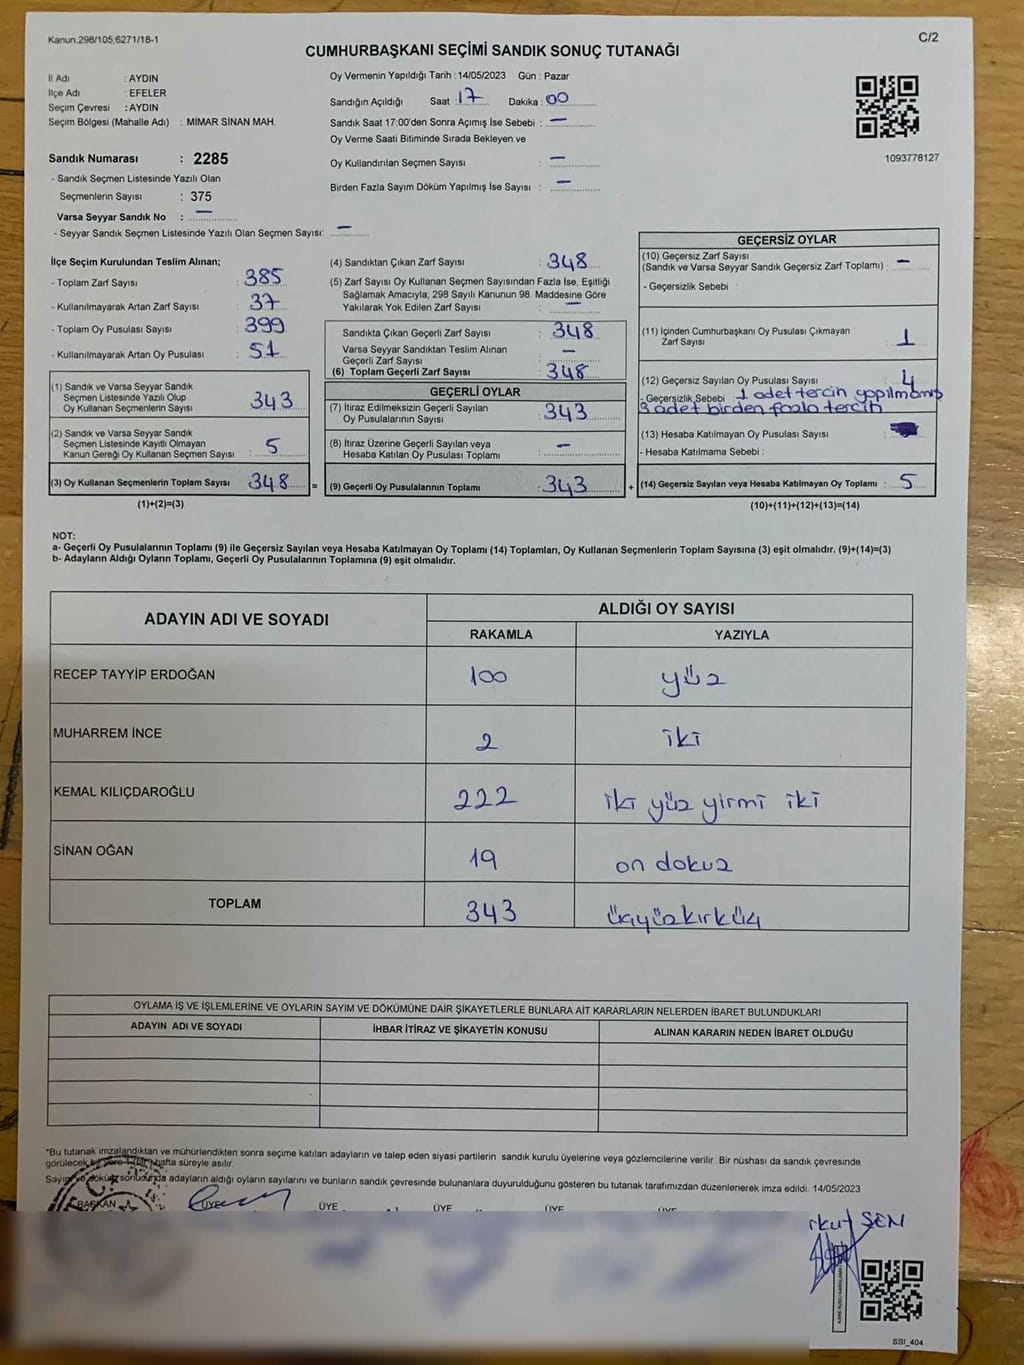 Kanun 298/105,6271/18-1
C/2
CUMHURBAŞKANI SEÇİMİ SANDIK SONUÇ TUTANAĞI
İl Adı : AYDIN
İlçe Adı : EFELER
Seçim Çevresi : AYDIN
Seçim Bölgesi (Mahalle Adı) : MİMAR SİNAN MAH.
Sandık Numarası : 2285
- Sandık Seçmen Listesinde Yazılı Olan
Seçmenlerin Sayısı : 375
Varsa Seyyar Sandık No : —
- Seyyar Sandık Seçmen Listesinde Yazılı Olan Seçmen Sayısı: —
Oy Vermenin Yapıldığı Tarih : 14/05/2023 Gün : Pazar
Sandığın Açıldığı Saat : 17 Dakika : 00
Sandık Saat 17:00'den Sonra Açımış İse Sebebi : —
Oy Verme Saati Bitiminde Sırada Bekleyen ve
Oy Kullandırılan Seçmen Sayısı : —
Birden Fazla Sayım Döküm Yapılmış İse Sayısı : —
1093778127
İlçe Seçim Kurulundan Teslim Alınan;
- Toplam Zarf Sayısı : 385
- Kullanılmayarak Artan Zarf Sayısı : 37
- Toplam Oy Pusulası Sayısı : 399
- Kullanılmayarak Artan Oy Pusulası : 51
(1) Sandık ve Varsa Seyyar Sandık
Seçmen Listesinde Yazılı Olup
Oy Kullanan Seçmenlerin Sayısı : 343
(2) Sandık ve Varsa Seyyar Sandık
Seçmen Listesinde Kayıtlı Olmayan
Kanun Gereği Oy Kullanan Seçmen Sayısı : 5
(3) Oy Kullanan Seçmenlerin Toplam Sayısı : 348 =
(1)+(2)=(3)
(4) Sandıktan Çıkan Zarf Sayısı : 348
(5) Zarf Sayısı Oy Kullanan Seçmen Sayısından Fazla İse, Eşitliği
Sağlamak Amacıyla; 298 Sayılı Kanunun 98. Maddesine Göre
Yakılarak Yok Edilen Zarf Sayısı : —
Sandıkta Çıkan Geçerli Zarf Sayısı : 348
Varsa Seyyar Sandıktan Teslim Alınan
Geçerli Zarf Sayısı : —
(6) Toplam Geçerli Zarf Sayısı : 348
GEÇERLİ OYLAR
(7) İtiraz Edilmeksizin Geçerli Sayılan
Oy Pusulalarının Sayısı : 343
(8) İtiraz Üzerine Geçerli Sayılan veya
Hesaba Katılan Oy Pusulası Toplamı : —
(9) Geçerli Oy Pusulalarının Toplamı : 343 +
GEÇERSİZ OYLAR
(10) Geçersiz Zarf Sayısı
(Sandık ve Varsa Seyyar Sandık Geçersiz Zarf Toplamı) : —
- Geçersizlik Sebebi :
(11) İçinden Cumhurbaşkanı Oy Pusulası Çıkmayan
Zarf Sayısı : 1
(12) Geçersiz Sayılan Oy Pusulası Sayısı : 4
- Geçersizlik Sebebi : 1 adet tercih yapılmamış
3 adet birden fazla tercih
(13) Hesaba Katılmayan Oy Pusulası Sayısı :
- Hesaba Katılmama Sebebi :
(14) Geçersiz Sayılan veya Hesaba Katılmayan Oy Toplamı : 5
(10)+(11)+(12)+(13)=(14)
NOT:
a- Geçerli Oy Pusulalarının Toplamı (9) ile Geçersiz Sayılan veya Hesaba Katılmayan Oy Toplamı (14) Toplamları, Oy Kullanan Seçmenlerin Toplam Sayısına (3) eşit olmalıdır. (9)+(14)=(3)
b- Adayların Aldığı Oyların Toplamı, Geçerli Oy Pusulalarının Toplamına (9) eşit olmalıdır.
ADAYIN ADI VE SOYADI
ALDIĞI OY SAYISI
RAKAMLA YAZIYLA
RECEP TAYYİP ERDOĞAN 100 yüz
MUHARREM İNCE 2 iki
KEMAL KILIÇDAROĞLU 222 iki yüz yirmi iki
SİNAN OĞAN 19 on dokuz
TOPLAM 343 üçyüzkırküç
OYLAMA İŞ VE İŞLEMLERİNE VE OYLARIN SAYIM VE DÖKÜMÜNE DAİR ŞİKAYETLERLE BUNLARA AİT KARARLARIN NELERDEN İBARET BULUNDUKLARI
ADAYIN ADI VE SOYADI İHBAR İTİRAZ VE ŞİKAYETİN KONUSU ALINAN KARARIN NEDEN İBARET OLDUĞU
*Bu tutanak imzalandıktan ve mühürlendikten sonra seçime katılan adayların ve talep eden siyasi partilerin sandık kurulu üyelerine veya gözlemcilerine verilir. Bir nüshası da sandık çevresinde
görülecek bir yere 1 (bir) hafta süreyle asılır.
Sayım ve döküm sonucunda adayların aldığı oyların sayılarını ve bunların sandık çevresinde bulunanlara duyurulduğunu gösteren bu tutanak tarafımızdan düzenlenerek imza edildi. 14/05/2023
BAŞKAN ÜYE ÜYE ÜYE ÜYE ÜYE
ŞEN
SSI_404